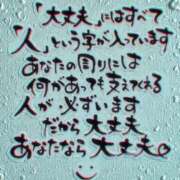 「大丈夫」にはすべて
「人」という字が入っています
あなたの周りには
何があっても支えてくれる
人が必ずいます
だから大丈夫
あなたなら大丈夫。